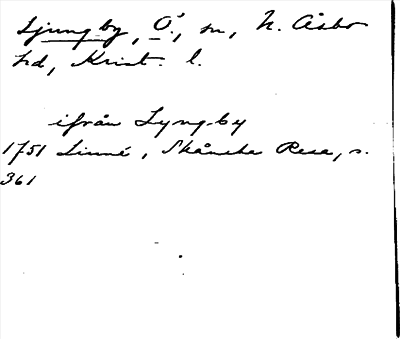 Ljungby, Ö., sn, N. Åsbo
hd, Krist. l.
ifrån Lyngby
1751 Linné, Skånska Resa, s.
361